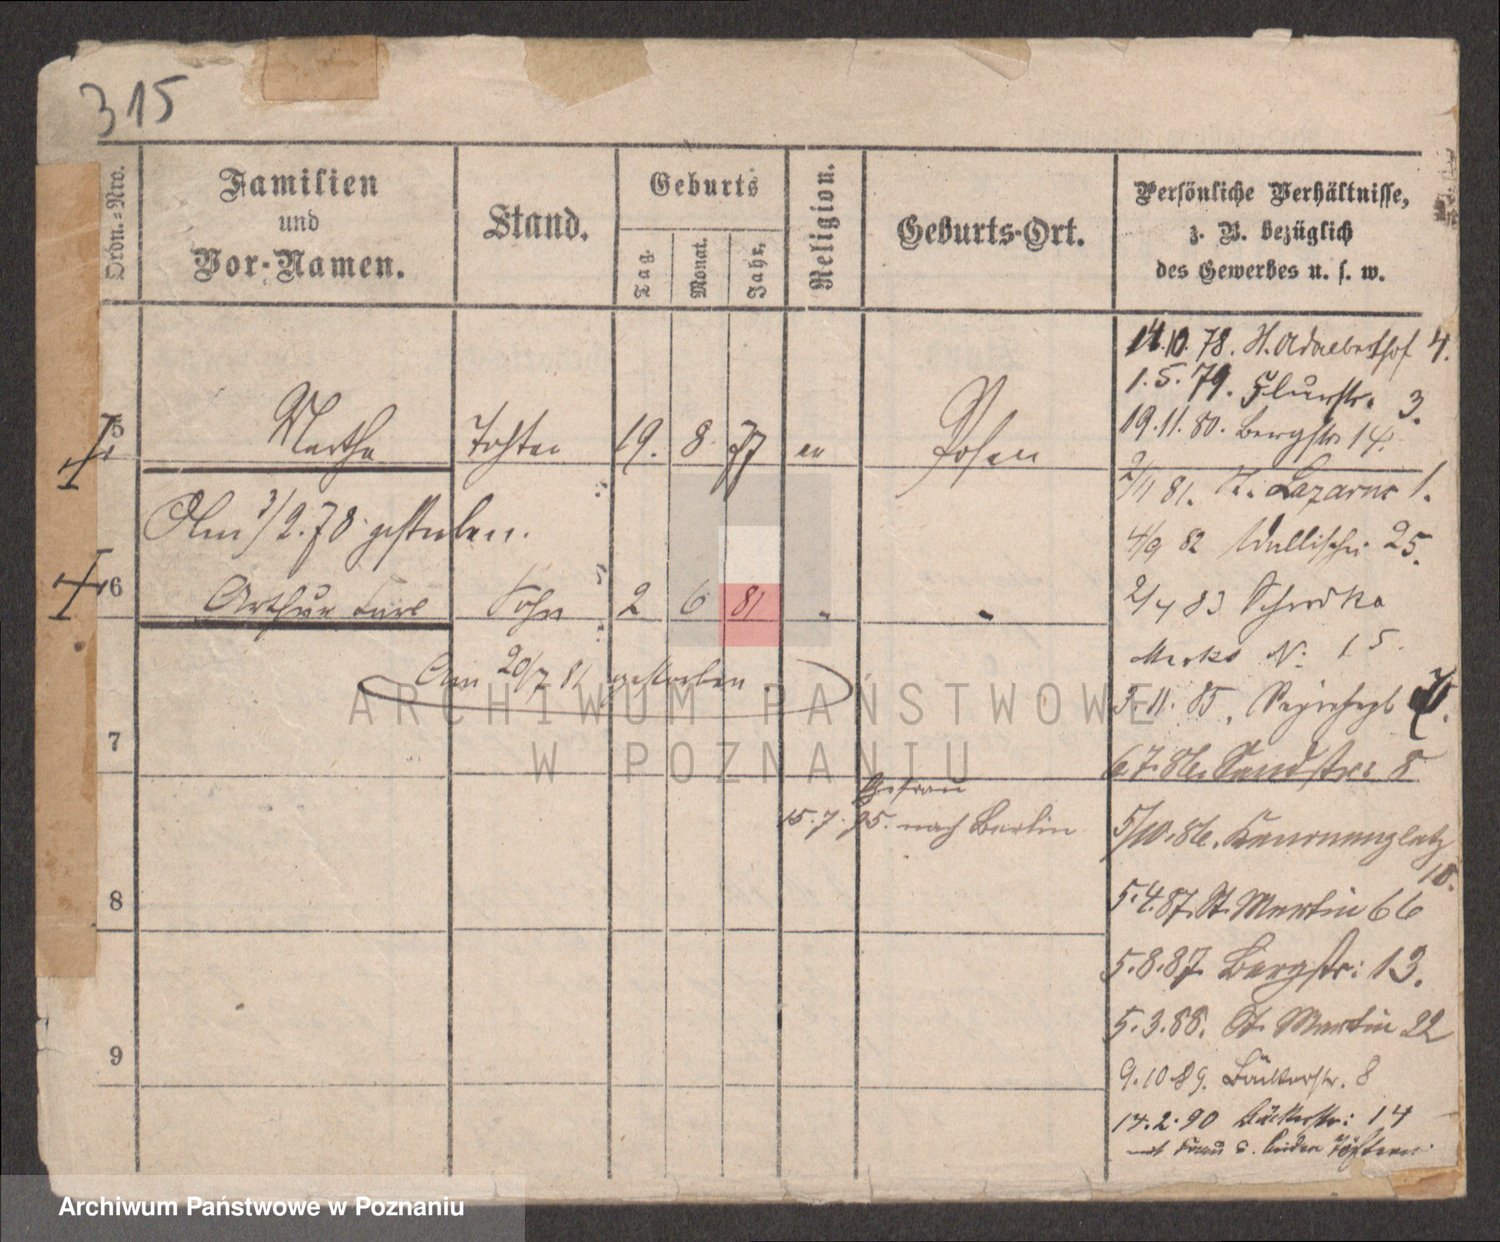 315
Ordn.=Nro.
Familien
und
Vor-Namen.
Stand.
Geburts
Tag.
Monat.
Jahr.
Religion.
Geburts-Ort.
Persönliche Verhältnisse,
z. B. bezüglich
des Gewerbes u. s. w.
14.10.78. St. Adalbertstr 4.
1.5.79. Flurstr. 3.
19.11.80. Bergstr 14.
5 Martha Tochter 19. 8 77 ev Posen
2/11 81. St. Lazarus 1.
Am 3/2.78 gestorben.
4/9 82 Wallischei 25.
6 Arthur Carl Sohn 2 6 81 " "
2/4 83 Schrodka
Markt No: 15.
Am 20/7 81 gestorben.
3.11.85.
7
6.7.86. Sandstr: 8
Ehefrau
15.7.95. nach Berlin
5/10.86. Kanonenplatz
10.
8
5.4.87. St. Martin 66
5.8.87 Bergstr: 13.
5.3.88. St. Martin 22
9
9.10.89. Bäckerstr. 8
14.2.90 Bäckerstr: 14
mit Frau u. beiden Töchtern.
ARCHIWUM PAŃSTWOWE
W POZNANIU
Archiwum Państwowe w Poznaniu